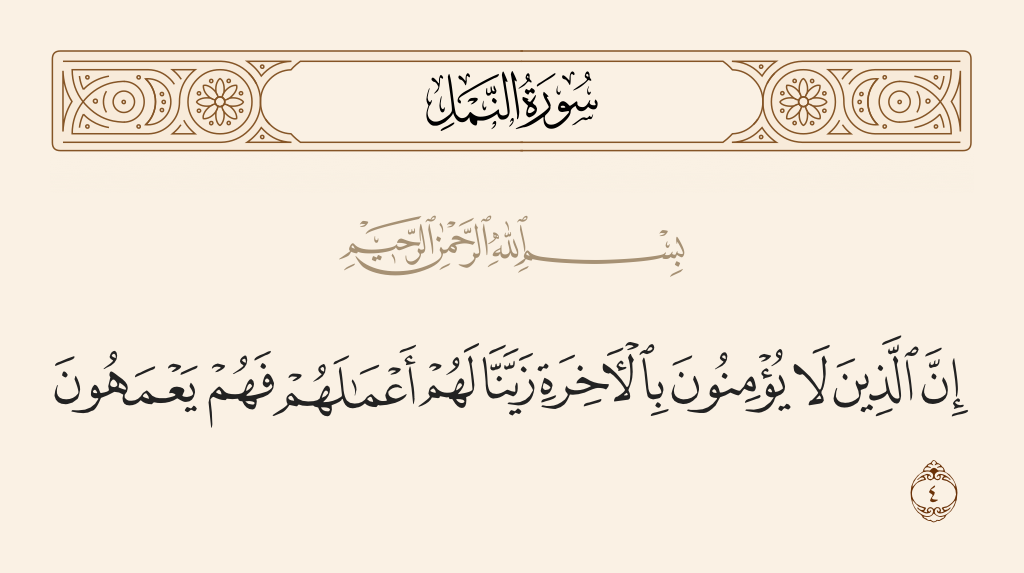 سُورَةُ النَّمْلِ
بِسْمِ ٱللَّهِ ٱلرَّحْمَٰنِ ٱلرَّحِيمِ
إِنَّ ٱلَّذِينَ لَا يُؤْمِنُونَ بِٱلْأَخِرَةِ زَيَّنَّا لَهُمْ أَعْمَٰلَهُمْ فَهُمْ يَعْمَهُونَ
٤